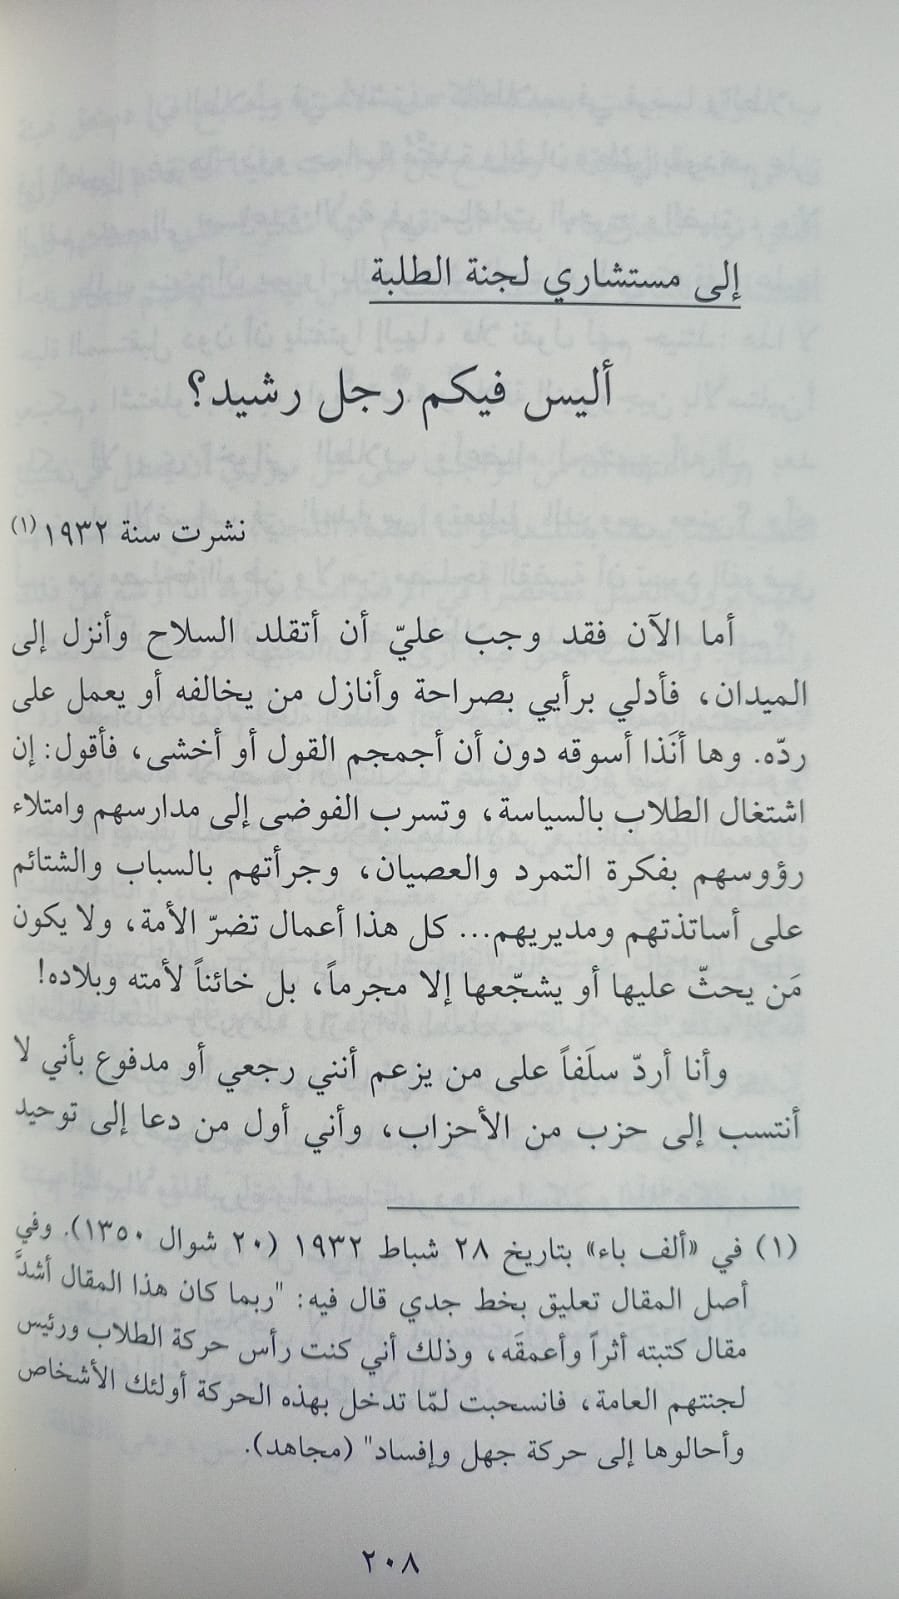 إلى مستشاري لجنة الطلبة
أليس فيكم رجل رشيد؟
نشرت سنة ١٩٣٢ (١)
أما الآن فقد وجب عليّ أن أتقلد السلاح وأنزل إلى
الميدان، فأدلي برأيي بصراحة وأنازل من يخالفه أو يعمل على
ردّه. وها أنَذا أسوقه دون أن أجمجم القول أو أخشى، فأقول: إن
اشتغال الطلاب بالسياسة، وتسرب الفوضى إلى مدارسهم وامتلاء
رؤوسهم بفكرة التمرد والعصيان، وجرأتهم بالسباب والشتائم
على أساتذتهم ومديريهم... كل هذا أعمال تضرّ الأمة، ولا يكون
مَن يحثّ عليها أو يشجّعها إلا مجرماً، بل خائناً لأمته وبلاده!
وأنا أردّ سلَفاً على من يزعم أنني رجعي أو مدفوع بأني لا
أنتسب إلى حزب من الأحزاب، وأني أول من دعا إلى توحيد
(١) في «ألف باء» بتاريخ ٢٨ شباط ١٩٣٢ (٢٠ شوال ١٣٥٠). وفي
أصل المقال تعليق بخط جدي قال فيه: "ربما كان هذا المقال أشدَّ
مقال كتبته أثراً وأعمقَه، وذلك أني كنت رأس حركة الطلاب ورئيس
لجنتهم العامة، فانسحبت لمّا تدخل بهذه الحركة أولئك الأشخاص
وأحالوها إلى حركة جهل وإفساد" (مجاهد).
٢٠٨